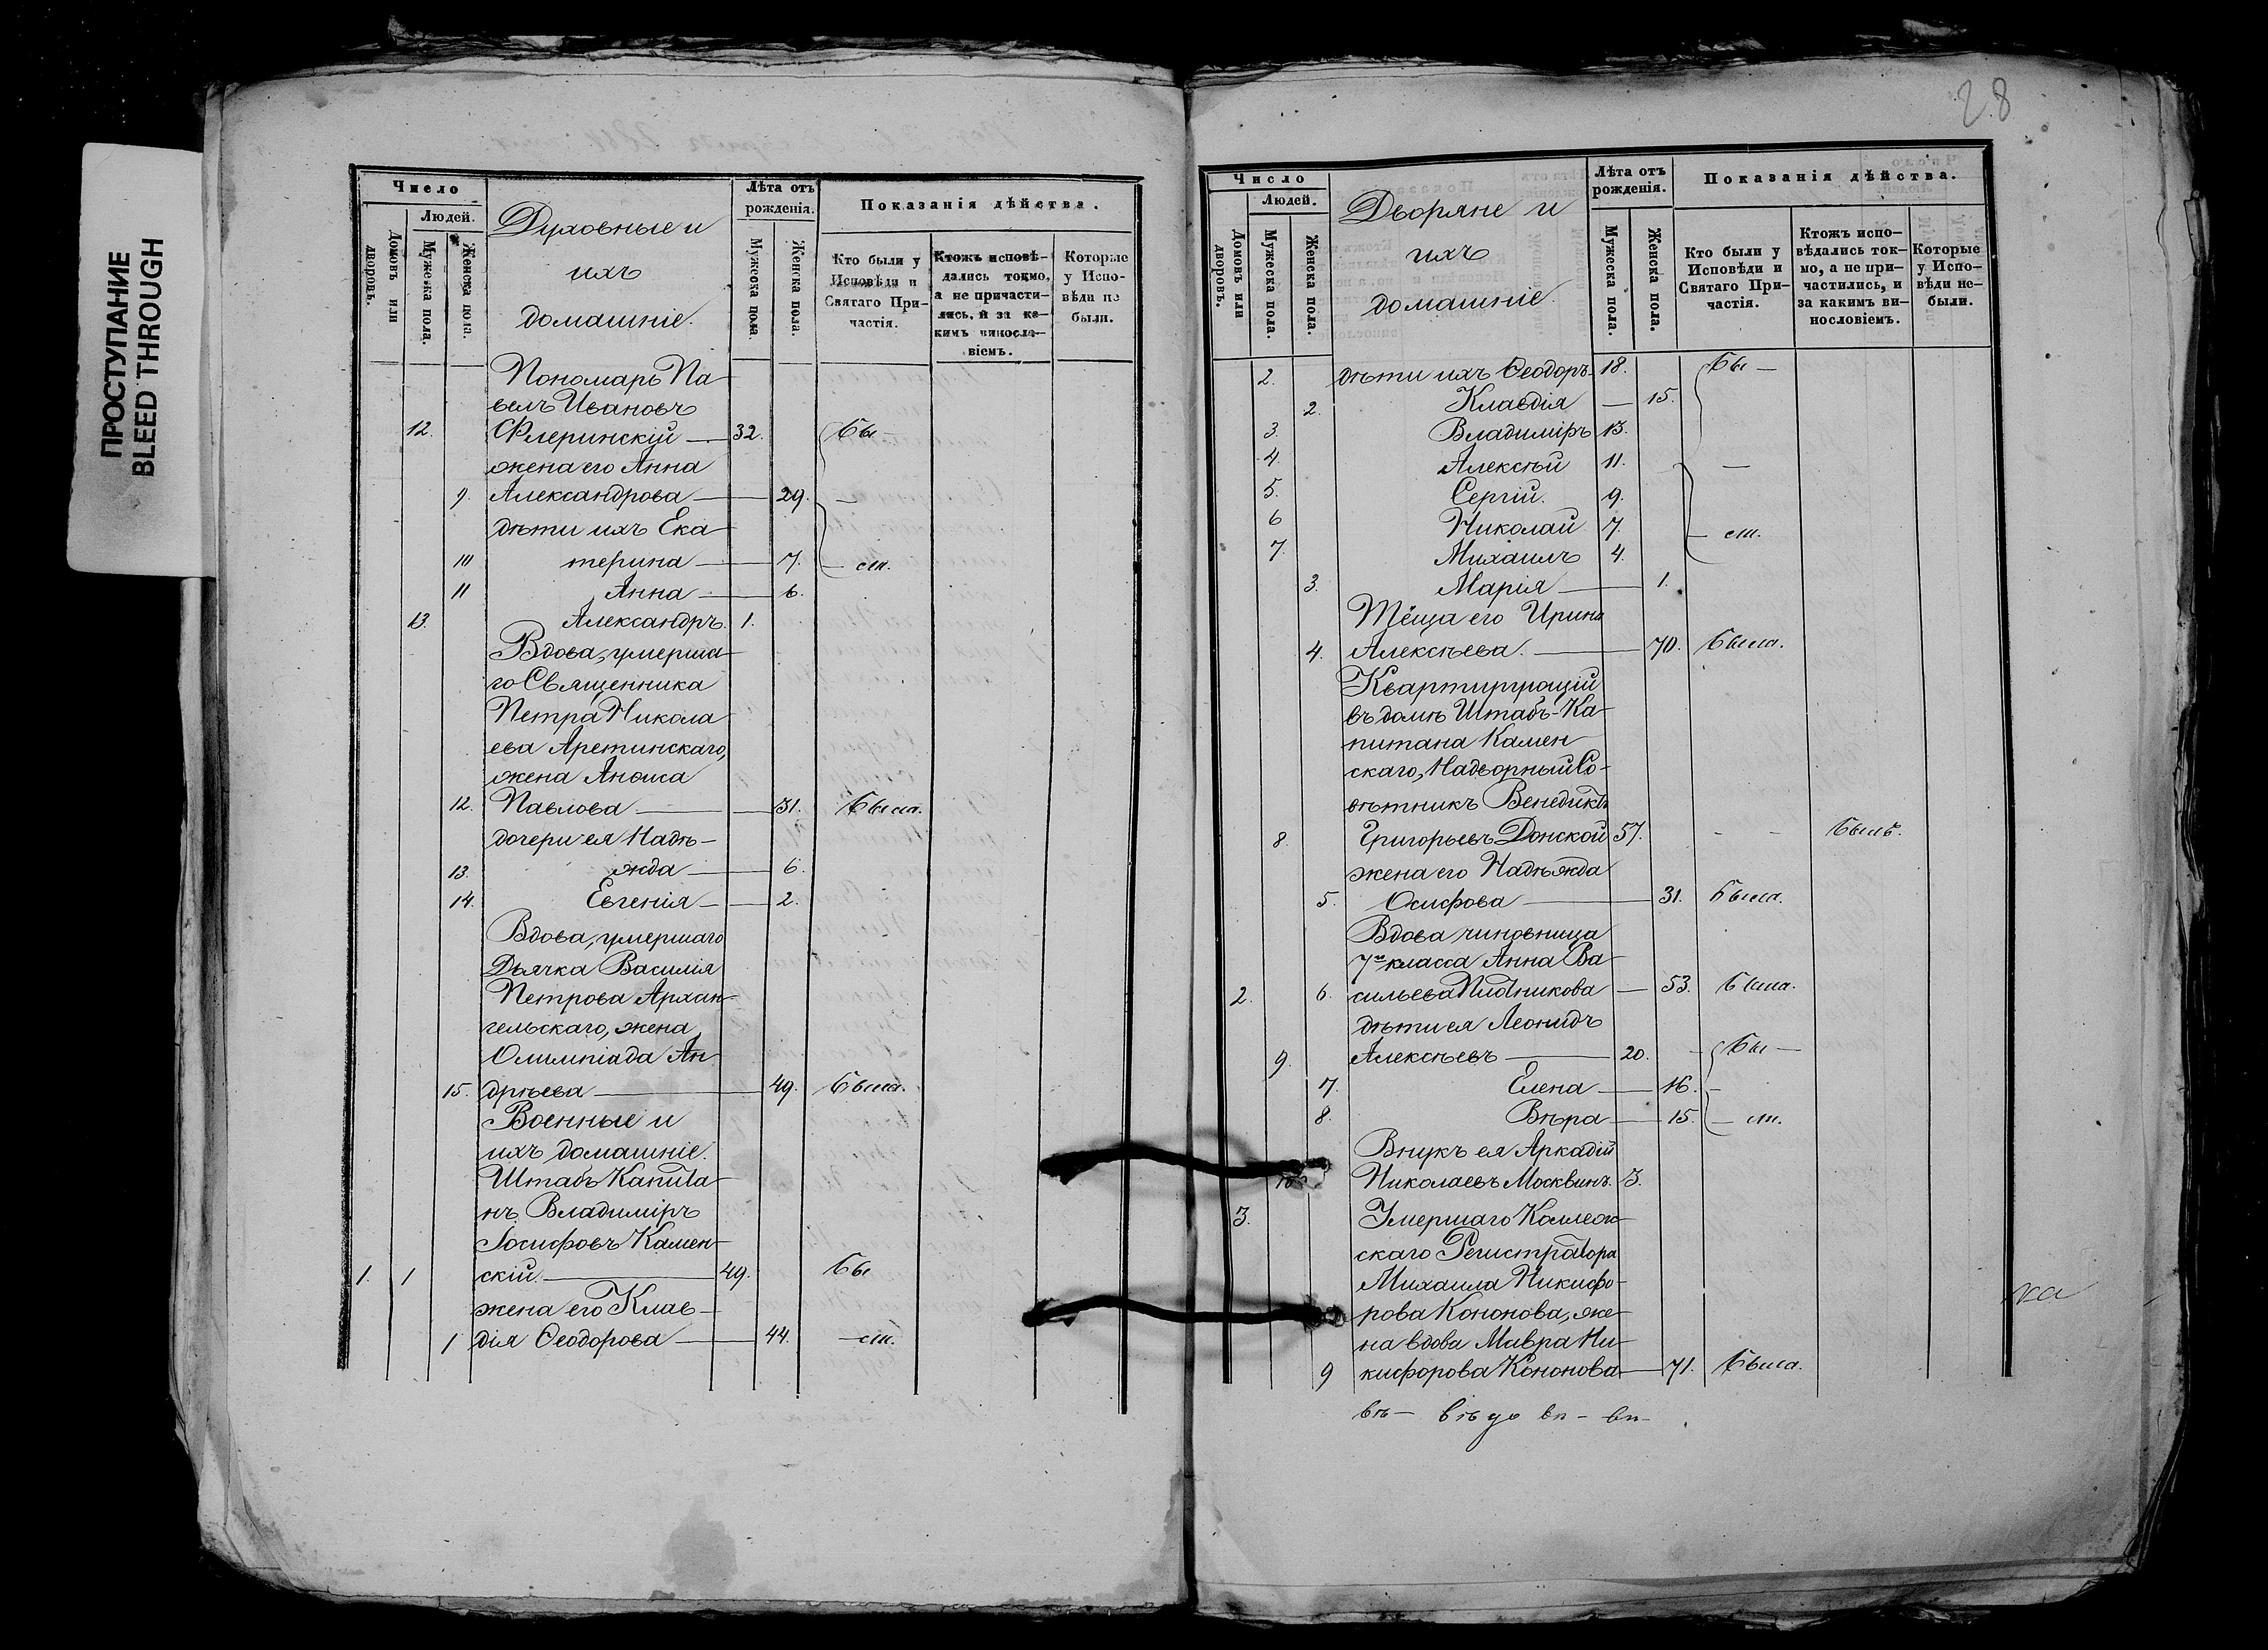 ПРОСТУПАНИЕ
BLEED THROUGH
Число
Людей.
Домовъ или дворовъ.
Мужеска пола.
Женска пола.
Духовные и
ихъ
домашніе.
Лѣта отъ
рожденія.
Мужеска пола
Женска пола.
Показанія дѣйства.
Кто были у
Исповѣди и
Святаго При-
частія.
Ктожъ исповѣ-
дались токмо,
а не причасти-
лись, и за ка-
кимъ винослo-
віемъ.
Которые
у Испо-
вѣди не
были.
Пономарь Па
велъ Ивановъ
12. Флеринскій — 32. Бы —
жена его Анна
9. Александрова — 29. —
дѣти ихъ Ека
10 терина — 7. — ли.
11 Анна — 6.
13. Александръ. 1.
Вдова, умерша
го Священника
Петра Никола
ева Аретинскаго,
жена Анфиса
12. Павлова — 31. Была.
дочери ея Надѣ-
13. жда — 6.
14. Евгенія — 2.
Вдова, умершаго
Дьячка Василія
Петрова Архан-
гельскаго, жена
Олимпіада Ан
15. дрѣева — 49. Была.
Военные и
ихъ домашніе.
Штабъ Капита
нъ Владиміръ
Іосифовъ Камен
1. 1 скій. — 49. Бы
жена его Клав-
1 дія Ѳеодорова — 44. — ли.
28
Число
Людей.
Домовъ или дворовъ.
Мужеска пола.
Женска пола.
Дворяне и
ихъ
домашніе.
Лѣта отъ
рожденія.
Мужеска пола.
Женска пола.
Показанія дѣйства.
Кто были у
Исповѣди и
Святаго При-
частія.
Ктожъ испо-
вѣдались ток-
мо, а не при-
частились, и
за какимъ ви-
нословіемъ.
Которые
у Испо-
вѣди не-
были.
2. дѣти ихъ Ѳеодоръ 18. Бы —
2. Клавдія — 15.
3. Владиміръ 13.
4. Алексѣй 11. —
5. Сергій. 9.
6 Николай 7. — ли.
7. Михаилъ 4.
3. Марія — 1.
Тёща его Ирина
4. Алексѣева. — 70. Была.
Квартирующій
въ домѣ Штабъ-Ка-
питана Камен
скаго, Надворный Со-
вѣтникъ Венедиктъ
8. Григорьевъ Донской 57. - - Былъ.
жена его Надѣжда
5. Осифова — 31. Была.
Вдова чиновница
7го класса Анна Ва-
2. 6. сильева Плотникова — 53. Была.
дѣти ея Леонидъ
9. Алексѣевъ — 20. — Бы —
7. Елена — 16. —
8. Вѣра — 15. — ли.
Внукъ ея Аркадій
10 Николаевъ Москвинъ. 3.
3. Умершаго Коллеж-
скаго Регистратора
Михаила Никифо-
рова Кононова, же-
на вдова Мавра Ни-
9 кифорова Кононова — 71. Была.